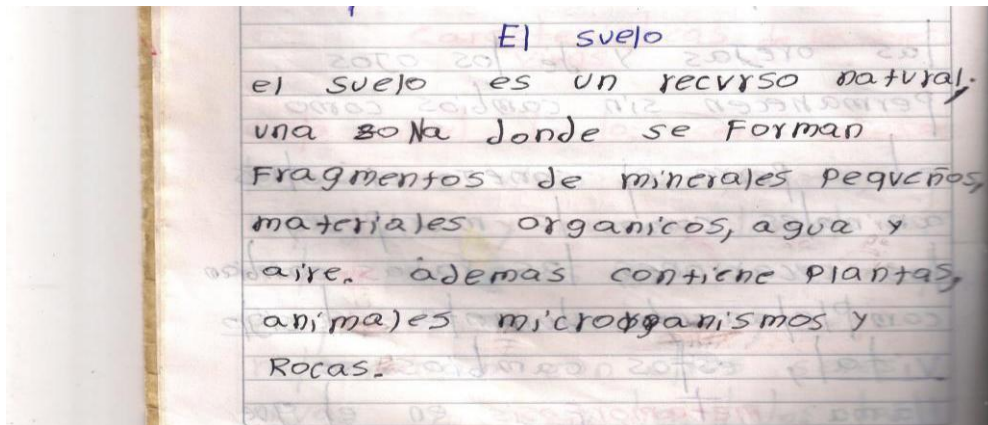 El suelo
el suelo es un recurso natural,
una zona donde se Forman
Fragmentos de minerales pequeños,
materiales organicos, agua y
aire. ademas contiene plantas,
animales microorganismos y
Rocas.